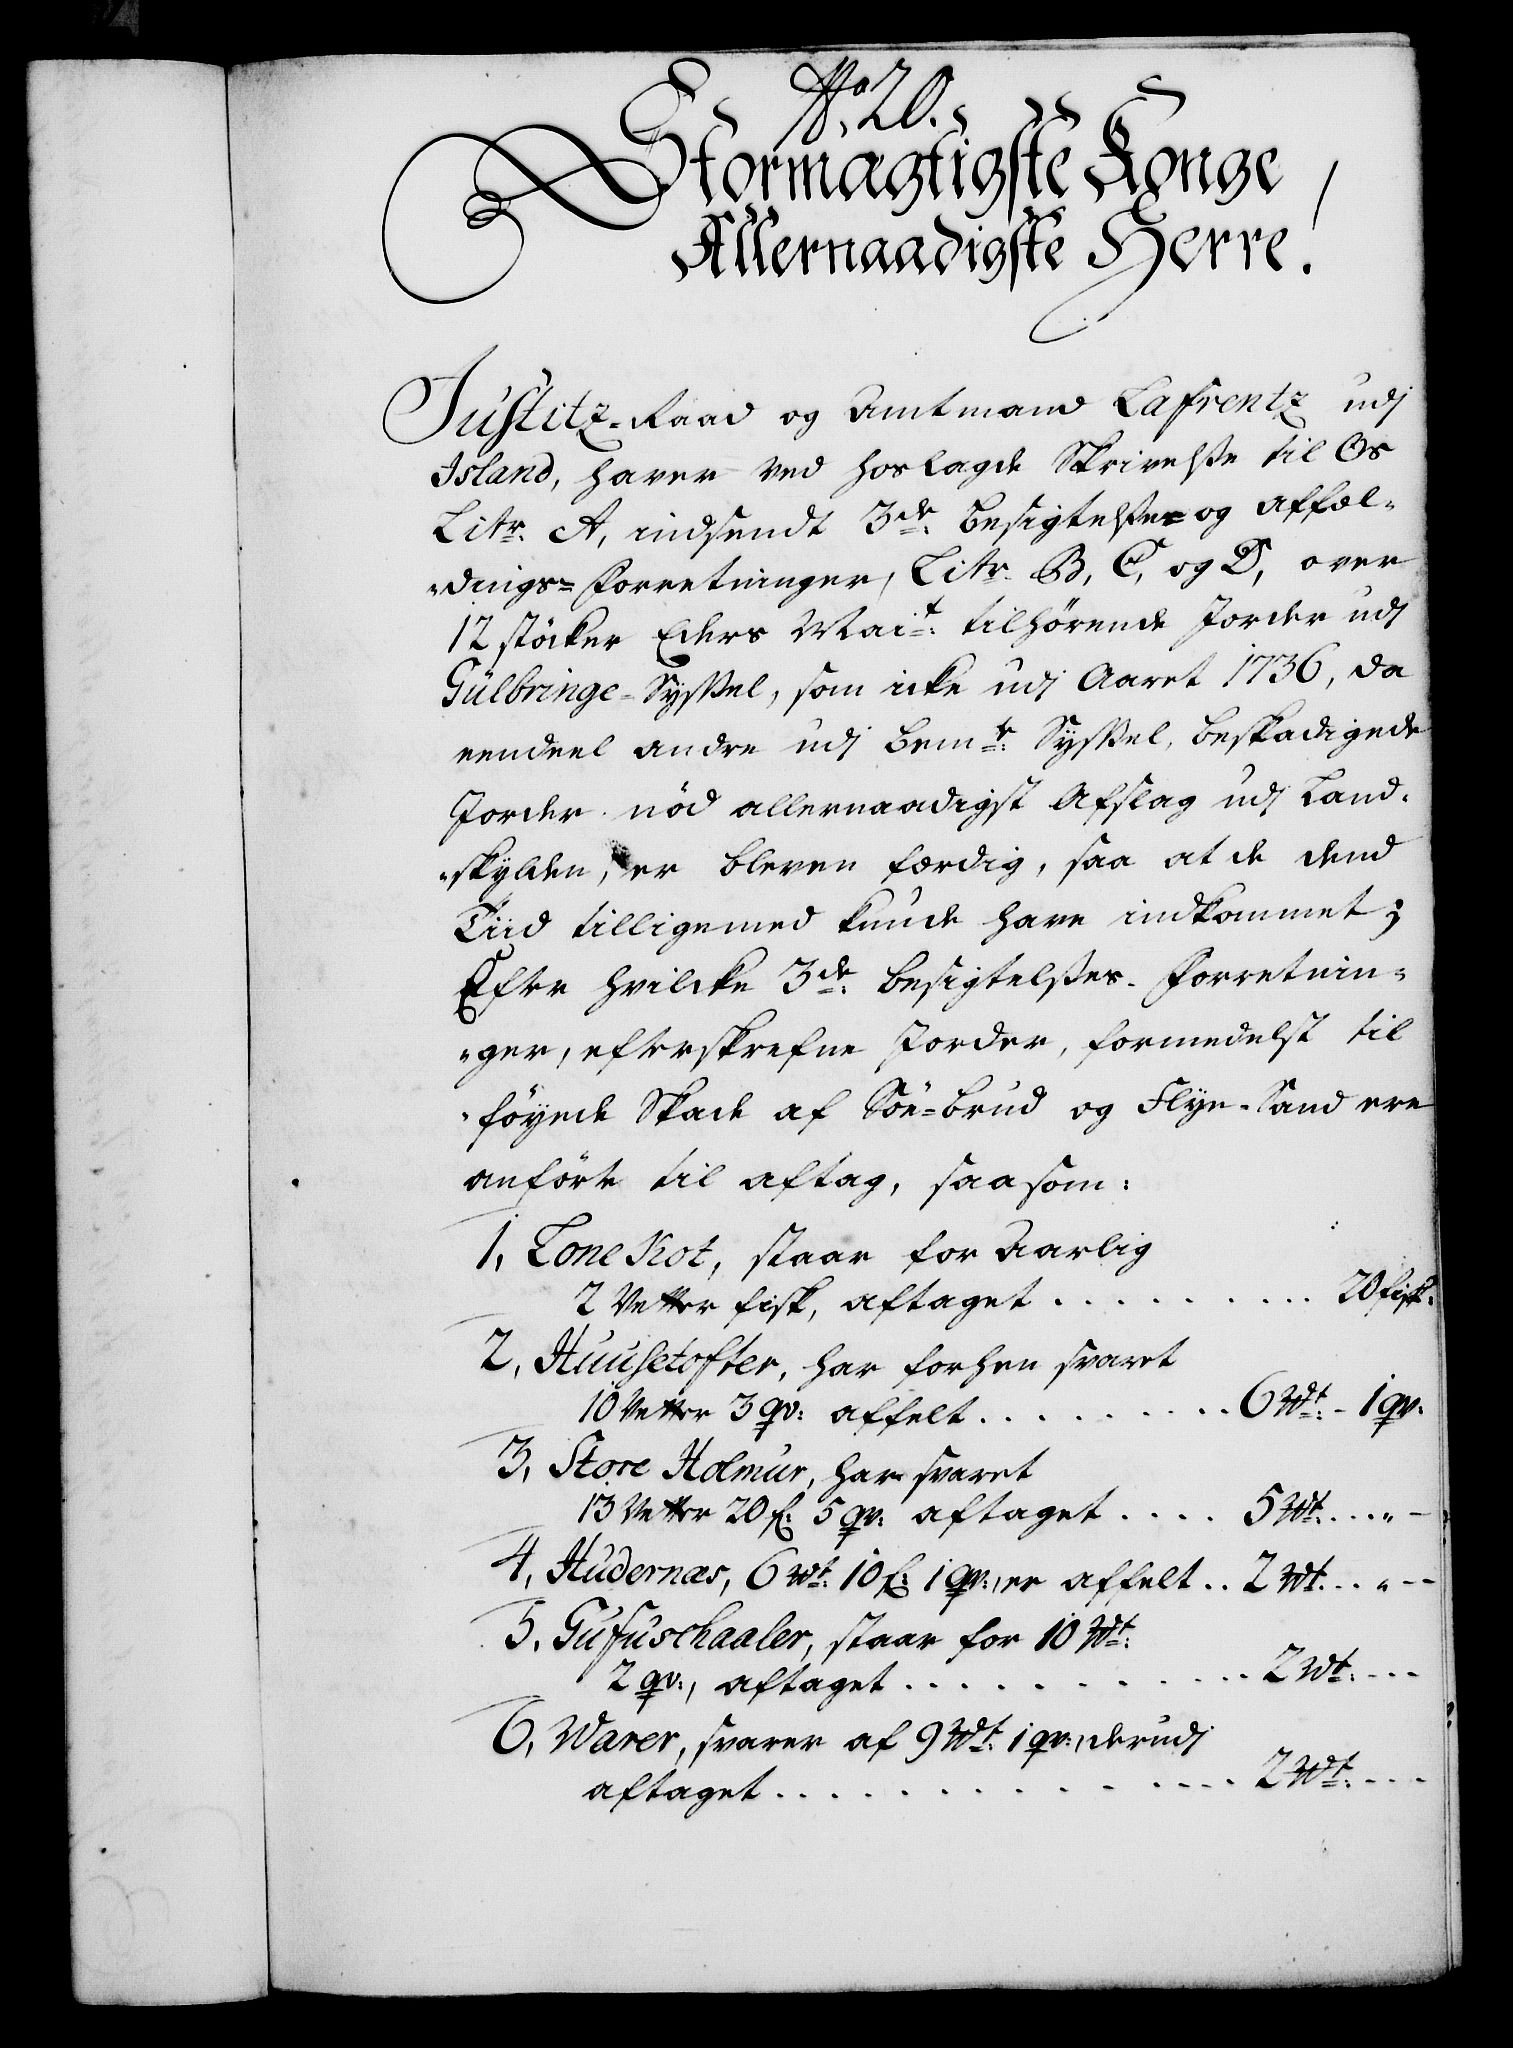 No. 20.
Stormægtigste Konge
Allernaadigste Herre!
Justitz-Raad og Amtmand Lafrentz udj
Island, haver ved hoslagde Skrivelsse til Os
Litr. A, indsendt 3de. Besigtelsse= og affæl-
dings= Forretninger, Litr. B, C, og D, over
12 støcker Eders Mait. tilhørende Jorder udj
Gülbringe-Syssel, som icke udj Aaret 1736, da
eendeel andre udj bemte. Syssel, beskadigede
Jorder nød allernaadigst Afslag udj Land-
skylden, er bleven færdig, saa at de dend
Tiid tilligemed kunde have indkommet;
Efter hvilcke 3de. besigtelsses-Forretnin-
ger, efterskrefne Jorder, formedelst til
føyede Skade af Söe-brud og Flye-Sand ere
anførte til aftag, saasom:
1, Lone Kot, staar for Aarlig
2 Vetter fisk, aftaget . . . . . . . . . 20 fisk:
2, Huusetofter, har forhen svaret
10 Vetter 3 qv: affelt . . . . . . . . . 6 Wt: - 1 qv.
3, Store Holmur, har svaret
13 Vetter 20 f: 5 qv: aftaget . . . . 5 Wt. . . „ -
4, Hudernæs, 6 Wt: 10 f: 1 qv:, er affelt . . 2 Wt. . . „ --
5, Gufuschaaler, staar for 10 Wt:
2 qv:, aftaget . . . . . . . . . . . 2 Wt: - - -
6, Warer, svarer af 9 Wt: 1 qv:, derudj
aftaget . . . . . . . . . . . . . . 2 Wt: - - -